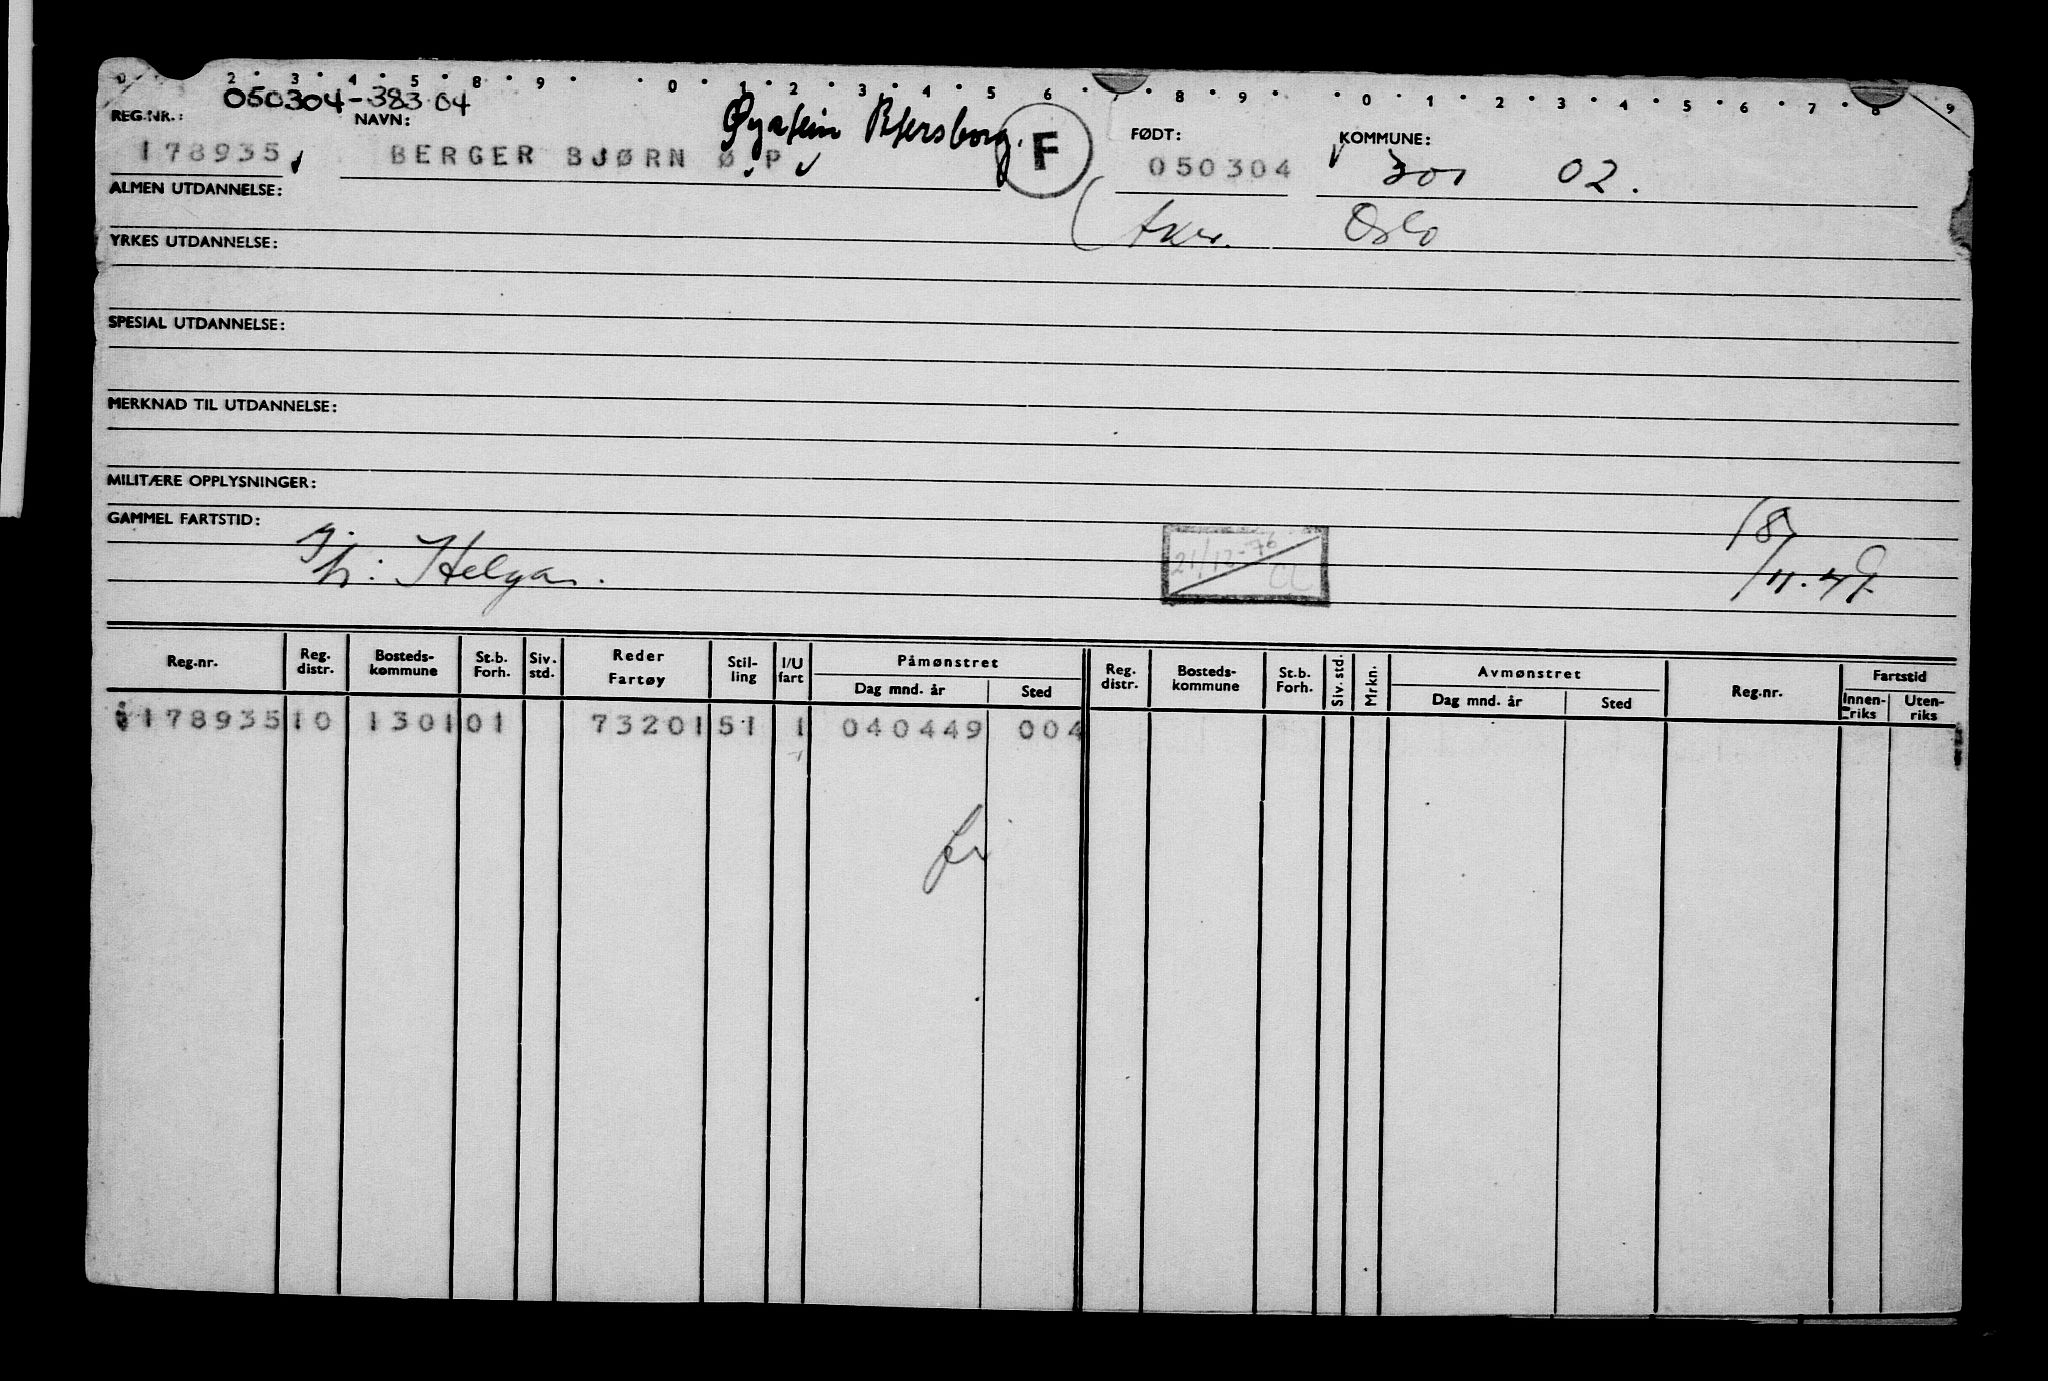 0 2 3 4 5 8 9 0 1 2 3 4 5 6 7 8 9 0 1 2 3 4 5 6 7 8 9
050304-38304
REG.NR.: NAVN: FØDT: KOMMUNE:
Øystein
178935 BERGER BJØRN Ø P F 050304 301 02.
ALMEN UTDANNELSE:
Aker. Oslo
YRKES UTDANNELSE:
SPESIAL UTDANNELSE:
MERKNAD TIL UTDANNELSE:
MILITÆRE OPPLYSNINGER:
GAMMEL FARTSTID:
Helgar.
21/12-76 CL
18/11.49
Reg.nr. Reg. distr. Bosteds-kommune St.b. Forh. Siv. std. Reder Fartøy Stil-ling I/U fart Påmønstret Dag mnd. år Sted Reg. distr. Bosteds-kommune St.b. Forh. Siv. std. Mrkn. Avmønstret Dag mnd. år Sted Reg.nr. Fartstid Innen-riks Uten-riks
178935 10 1301 01 73201 51 1 040449 004